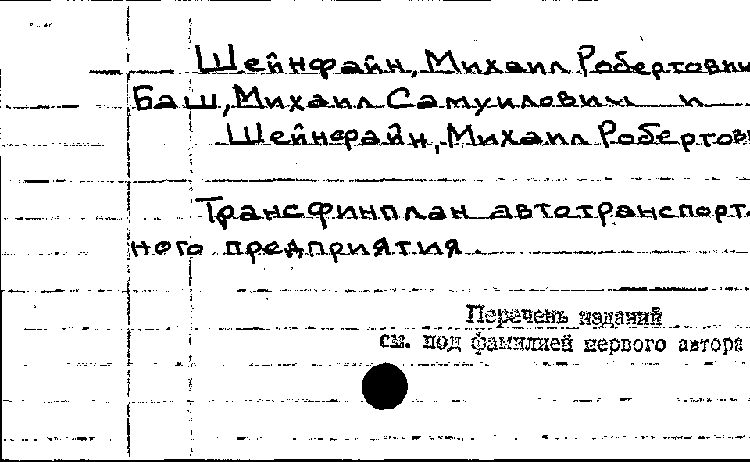 Шейнфайн, Михаил Робертович
Баш, Михаил Самуилович и
Шейнфайн, Михаил Робертов
Трансфинплан автотранспорт-
ного предприятия.
Перечень изданий
см. под фамилией первого автора